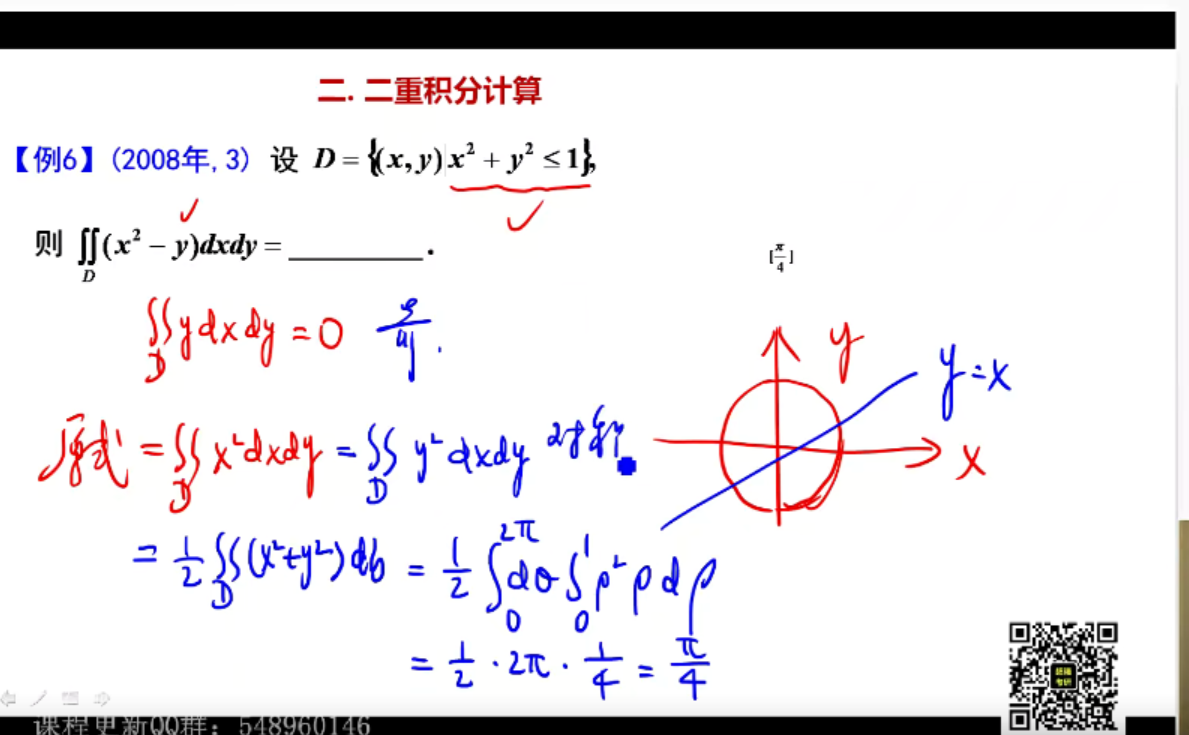 二. 二重积分计算
【例6】(2008年,3) 设 D = {(x, y) x² + y² ≤ 1},
则 ∬_D (x² − y)dxdy = ________ .
[π/4]
∬_D y dx dy = 0
y
y = x
原式 = ∬_D x² dxdy = ∬_D y² dxdy 对称
x
= 1/2 ∬_D (x²+y²) dσ = 1/2 ∫₀^{2π} dθ ∫₀^1 ρ² ρ dρ
= 1/2 · 2π · 1/4 = π/4
课程更新QQ群: 548960146